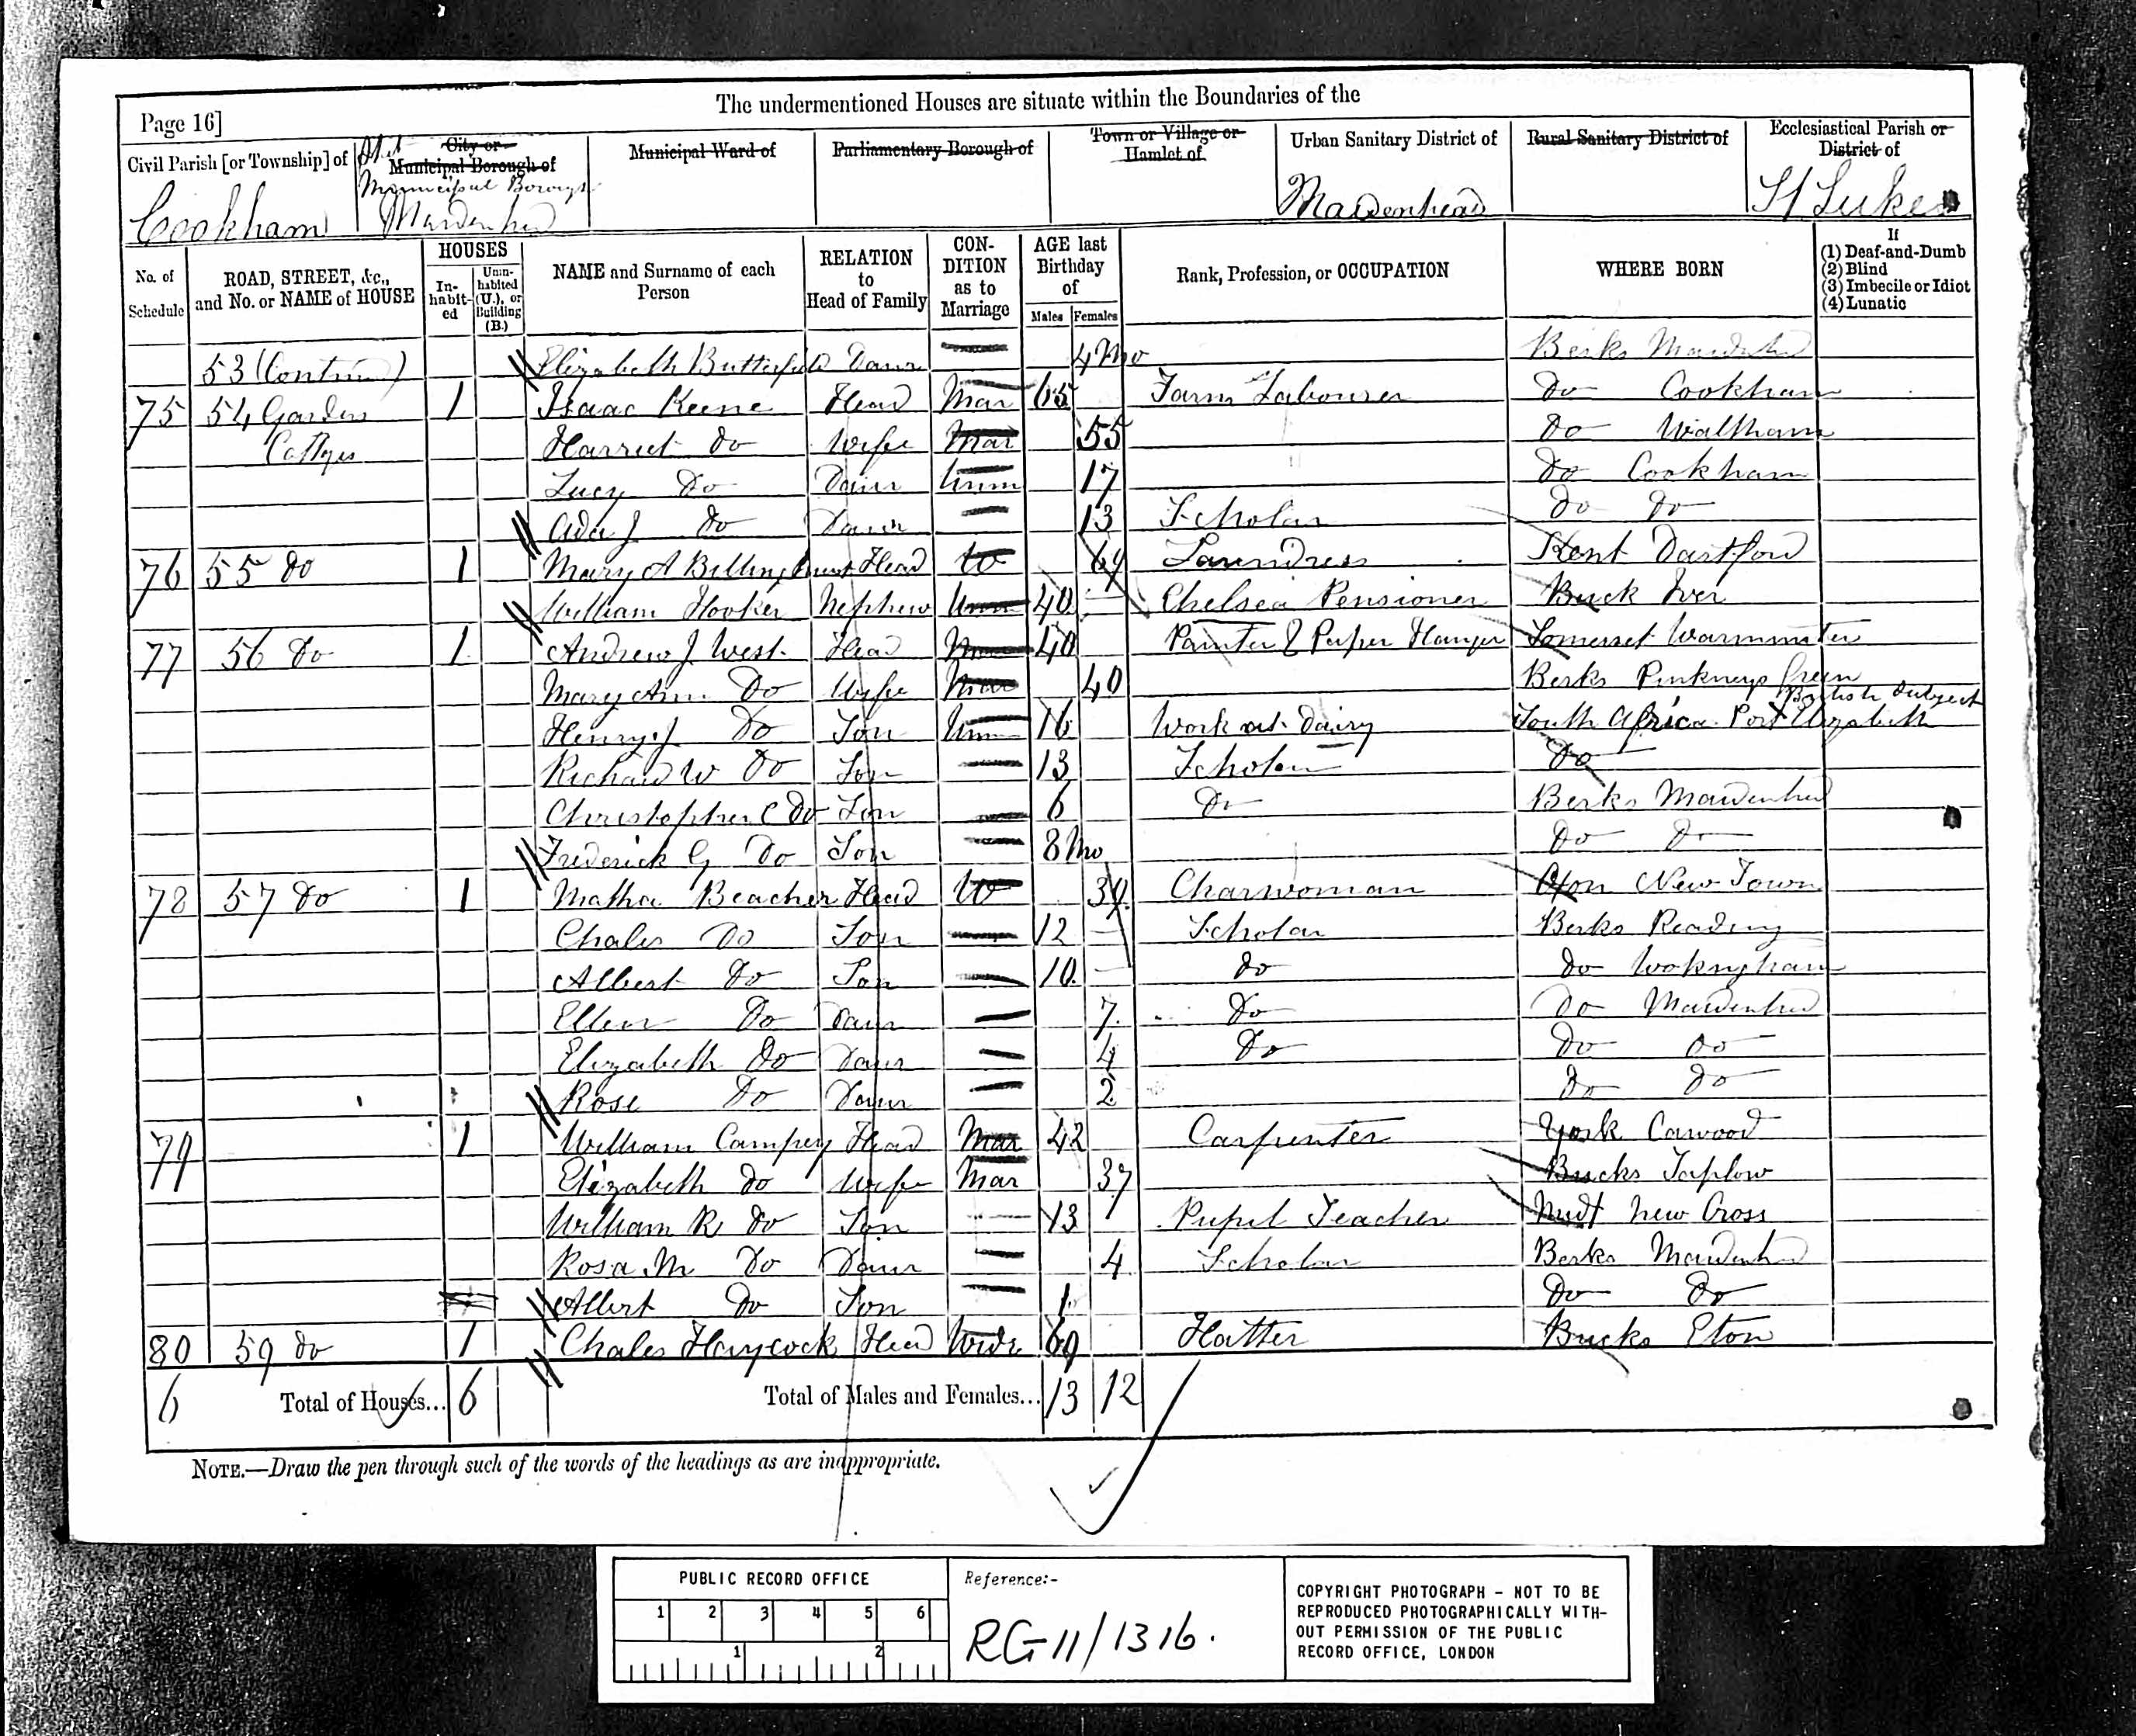 The undermentioned Houses are situate within the Boundaries of the
Page 16]
Civil Parish [or Township] of
Cookham
City or Municipal Borough of
Municipal Borough
Maidenhead
Municipal Ward of
Parliamentary Borough of
Town or Village or Hamlet of
Urban Sanitary District of
Maidenhead
Rural Sanitary District of
Ecclesiastical Parish or District of
St Lukes
No. of Schedule
ROAD, STREET, &c., and No. or NAME of HOUSE
HOUSES
In-habit-ed
Unin-habited (U.), or Building (B.)
NAME and Surname of each Person
RELATION to Head of Family
CON-DITION as to Marriage
AGE last Birthday of
Males Females
Rank, Profession, or OCCUPATION
WHERE BORN
If
(1) Deaf-and-Dumb
(2) Blind
(3) Imbecile or Idiot
(4) Lunatic
53 (Contin) Elizabeth Butterfield Daur 4 Mo Berks Maidenhd
75 54 Garden 1 Isaac Keene Head Mar 65 Farm Labourer Do Cookham
Cottges Harriet Do Wife Mar 55 Do Waltham
Lucy Do Daur Unm 17 Do Cookham
Ada J Do Daur 13 Scholar Do Do
76 55 Do 1 Mary A Billinghurst Head W 69 Laundress Kent Dartford
William Hooker Nephew Unm 40 Chelsea Pensioner Buck Iver
77 56 Do 1 Andrew J West Head Mar 40 Painter & Paper Hanger Somerset Warminster
Mary Ann Do Wife Mar 40 Berks Pinkneys Green
British Subject
Henry J Do Son Unm 16 Work at Dairy South Africa Port Elizabeth
Richard W Do Son 13 Scholar Do
Christopher C Do Son 6 Do Berks Maidenhed
Frederick G Do Son 8 Mo Do Do
78 57 Do 1 Matha Beacher Head W 39 Charwoman Oxon New Town
Chales Do Son 12 Scholar Berks Reading
Albert Do Son 10 Do Do Wokingham
Ellen Do Daur 7 Do Do Maidenhed
Elizabeth Do Daur 4 Do Do Do
Rose Do Daur 2 Do Do
79 1 William Campey Head Mar 42 Carpenter York Cawood
Elizabeth Do Wife Mar 37 Bucks Taplow
William R Do Son 13 Pupil Teacher Midx New Cross
Rosa M Do Daur 4 Scholar Berks Maidenhd
Albert Do Son 1 Do Do
80 59 Do 1 Chales Haycock Head Widr 69 Hatter Bucks Eton
6 Total of Houses... 6 Total of Males and Females... 13 12
NOTE.—Draw the pen through such of the words of the headings as are inappropriate.
PUBLIC RECORD OFFICE
1 2 3 4 5 6
1 2
Reference:-
RG 11/1316.
COPYRIGHT PHOTOGRAPH - NOT TO BE
REPRODUCED PHOTOGRAPHICALLY WITH-
OUT PERMISSION OF THE PUBLIC
RECORD OFFICE, LONDON